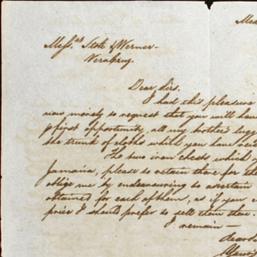 Mess.rs Stohl & Werner
Veracruz.
Dear Sirs.
I had this pleasure
now merely to request that you will have
first opportunity, all my brothers lugg
the trunk of cloths which you have
The two iron chests which y
Jamaica, please to retain them for the
oblige me by endeavouring to ascertain
obtained for each of them, as if you c
price I should prefer to sell them there.
I remain —
dear S